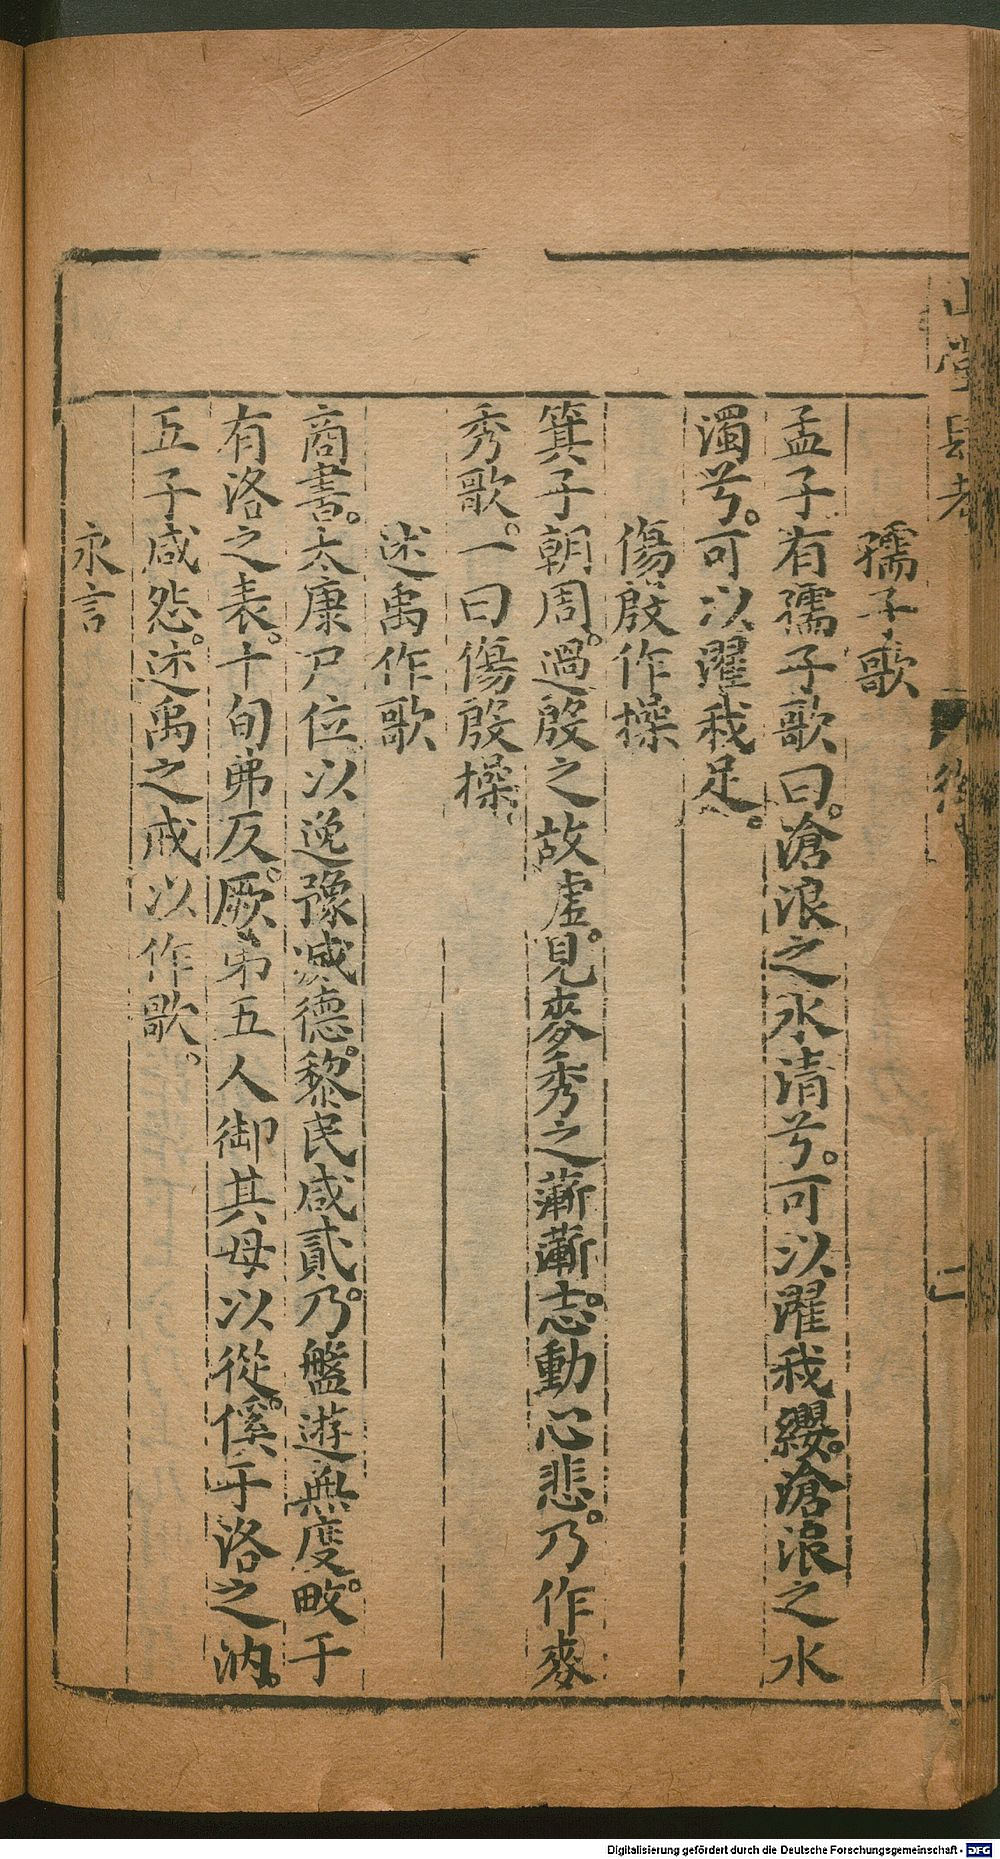 孺子歌
孟子有孺子歌曰。滄浪之水清兮。可以濯我纓。滄浪之水
濁兮。可以濯我足。
傷殷作操
箕子朝周。過殷之故虛。見麥秀之蔪蔪志。動心悲。乃作麥
秀歌。一曰傷殷操
述禹作歌
商書。太康尸位以逸豫滅德。黎民咸貳。乃盤遊無度。畋于
有洛之表。十旬弗反。厥弟五人御其母以從。傒于洛之汭。
五子咸怨。述禹之戒以作歌。
永言
Digitalisierung gefördert durch die Deutsche Forschungsgemeinschaft - DFG